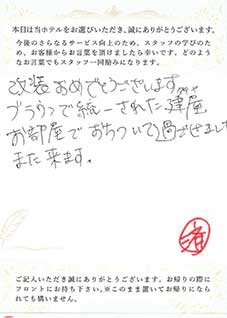 本日は当ホテルをお選びいただき、誠にありがとうございます。
今後のさらなるサービス向上のため、スタッフの学びのた
め、お客様からお言葉を頂けましたら幸いです。どのよう
なお言葉でもスタッフ一同励みになります。
改装おめでとうございます。
ブラウンで統一された建屋
お部屋でおちついて過ごせました
また来ます。
済
ご記入いただき誠にありがとうございます。お帰りの際に
フロントにお持ち下さい。※このまま置いてお帰りになら
れても構いません。